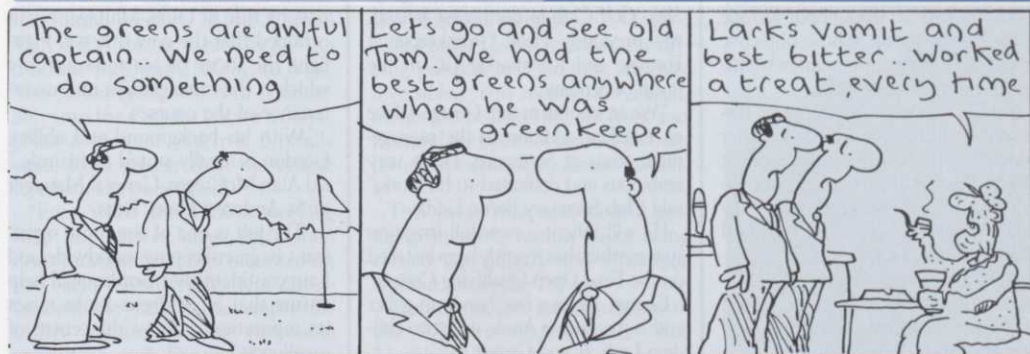 The greens are awful
Captain... We need to
do something
Let's go and see old
Tom. We had the
best greens anywhere
when he was
greenkeeper
Larks vomit and
best bitter... Worked
a treat, every time